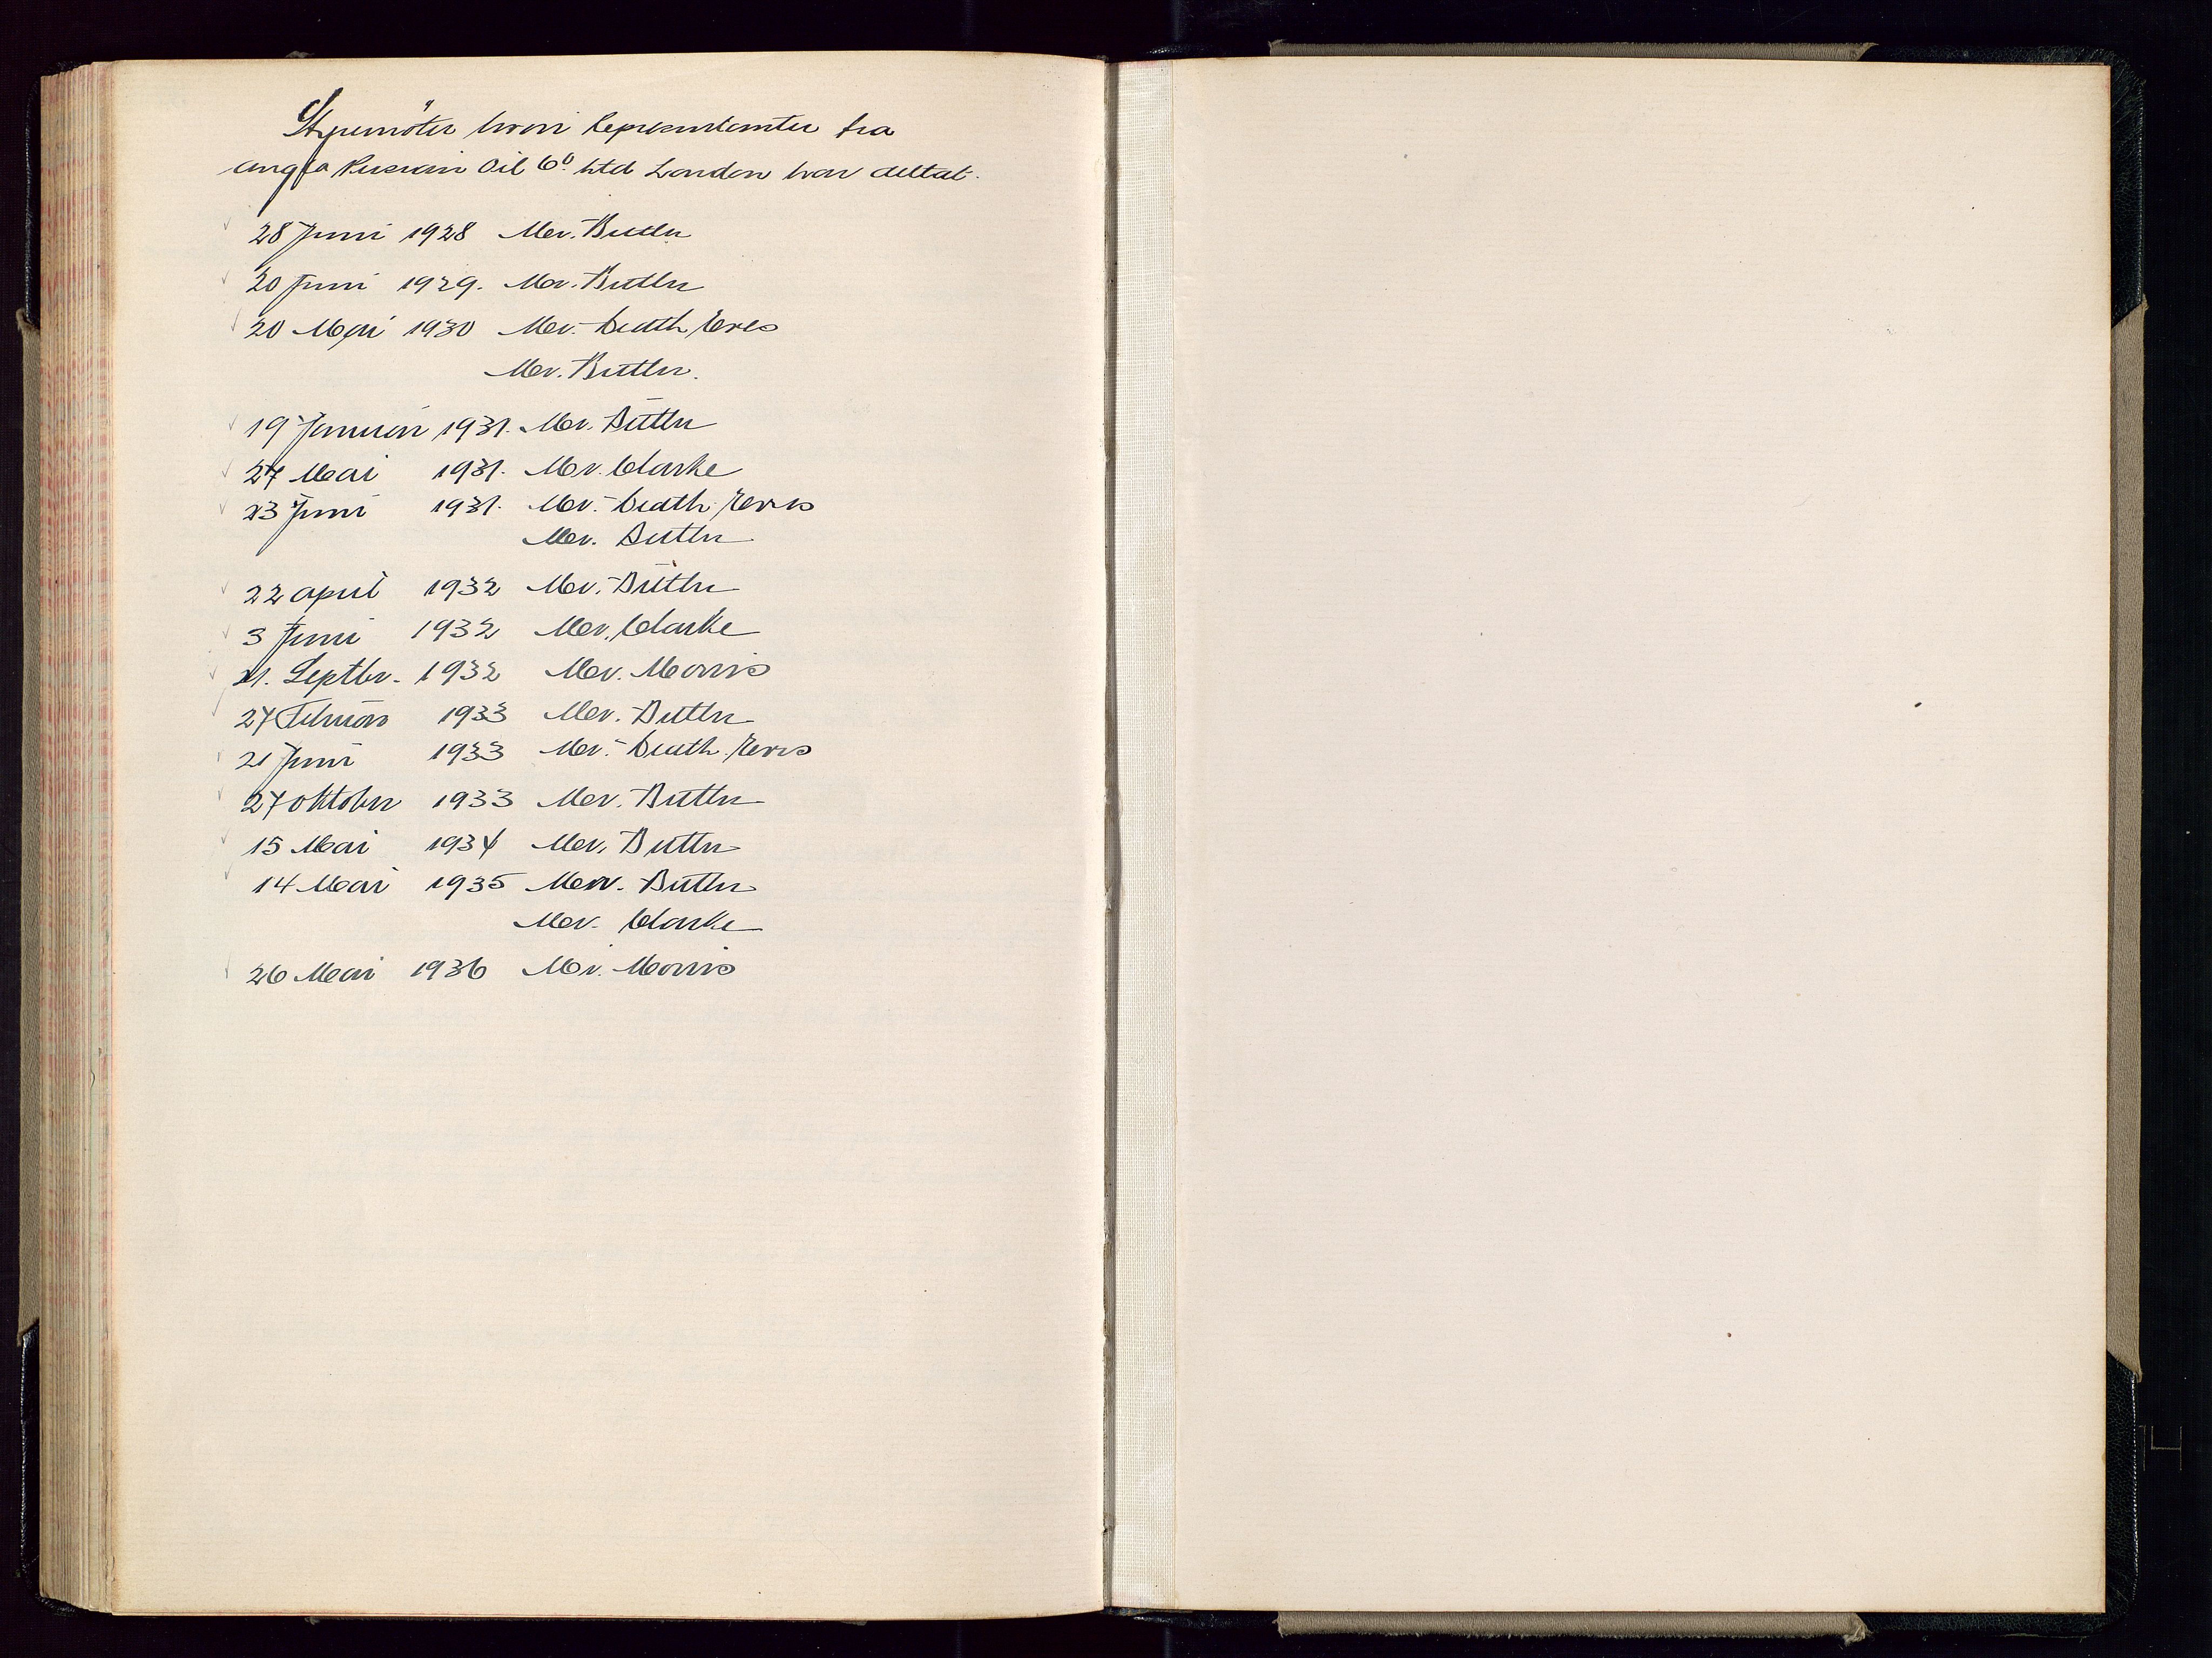 Styremöter hvori Representanter fra
Anglo Persian Oil Co. Ltd London har deltat.
28 Juni 1928 Mr. Butler
20 Juni 1929. Mr. Butler
20 Mai 1930 Mr. Heath Eves
Mr. Butler.
19 Januar 1931. Mr. Butler
27 Mai 1931. Mr. Clarke
23 Juni 1931. Mr. Heath Eves
Mr. Butler
22 April 1932 Mr. Butler
3 Juni 1932 Mr. Clarke
21. Septbr. 1932 Mr. Morris
27 Februar 1933 Mr. Butler
21 Juni 1933 Mr. Heath Eves
27 Oktober 1933 Mr. Butler
15 Mai 1934 Mr. Butler
14 Mai 1935 Mr. Butler
Mr. Clarke
26 Mai 1936 Mr. Morris